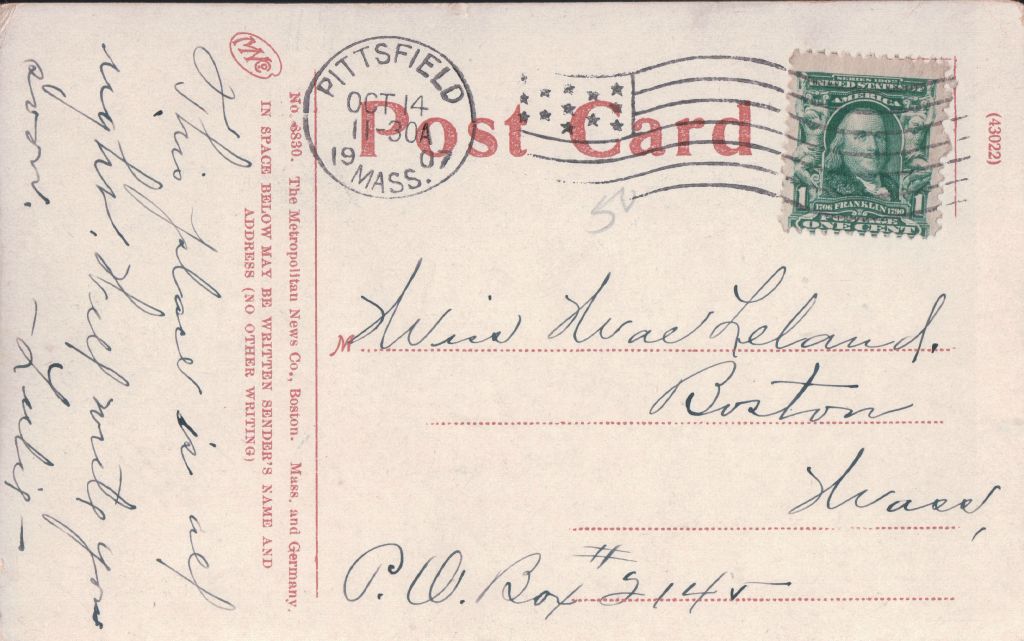 MNCo
No. 6830. The Metropolitan News Co., Boston. Mass. and Germany.
IN SPACE BELOW MAY BE WRITTEN SENDER'S NAME AND
ADDRESS (NO OTHER WRITING)
This place is all
right. Will write you
soon.
PITTSFIELD
OCT 14
11-30A
1907
MASS.
Post Card
SERIES 1902
UNITED STATES OF
AMERICA
1 1
1706 FRANKLIN 1790
POSTAGE
ONE CENT
(43022)
M
Miss Mae Leland.
Boston
Mass,
P.O. Box #2145